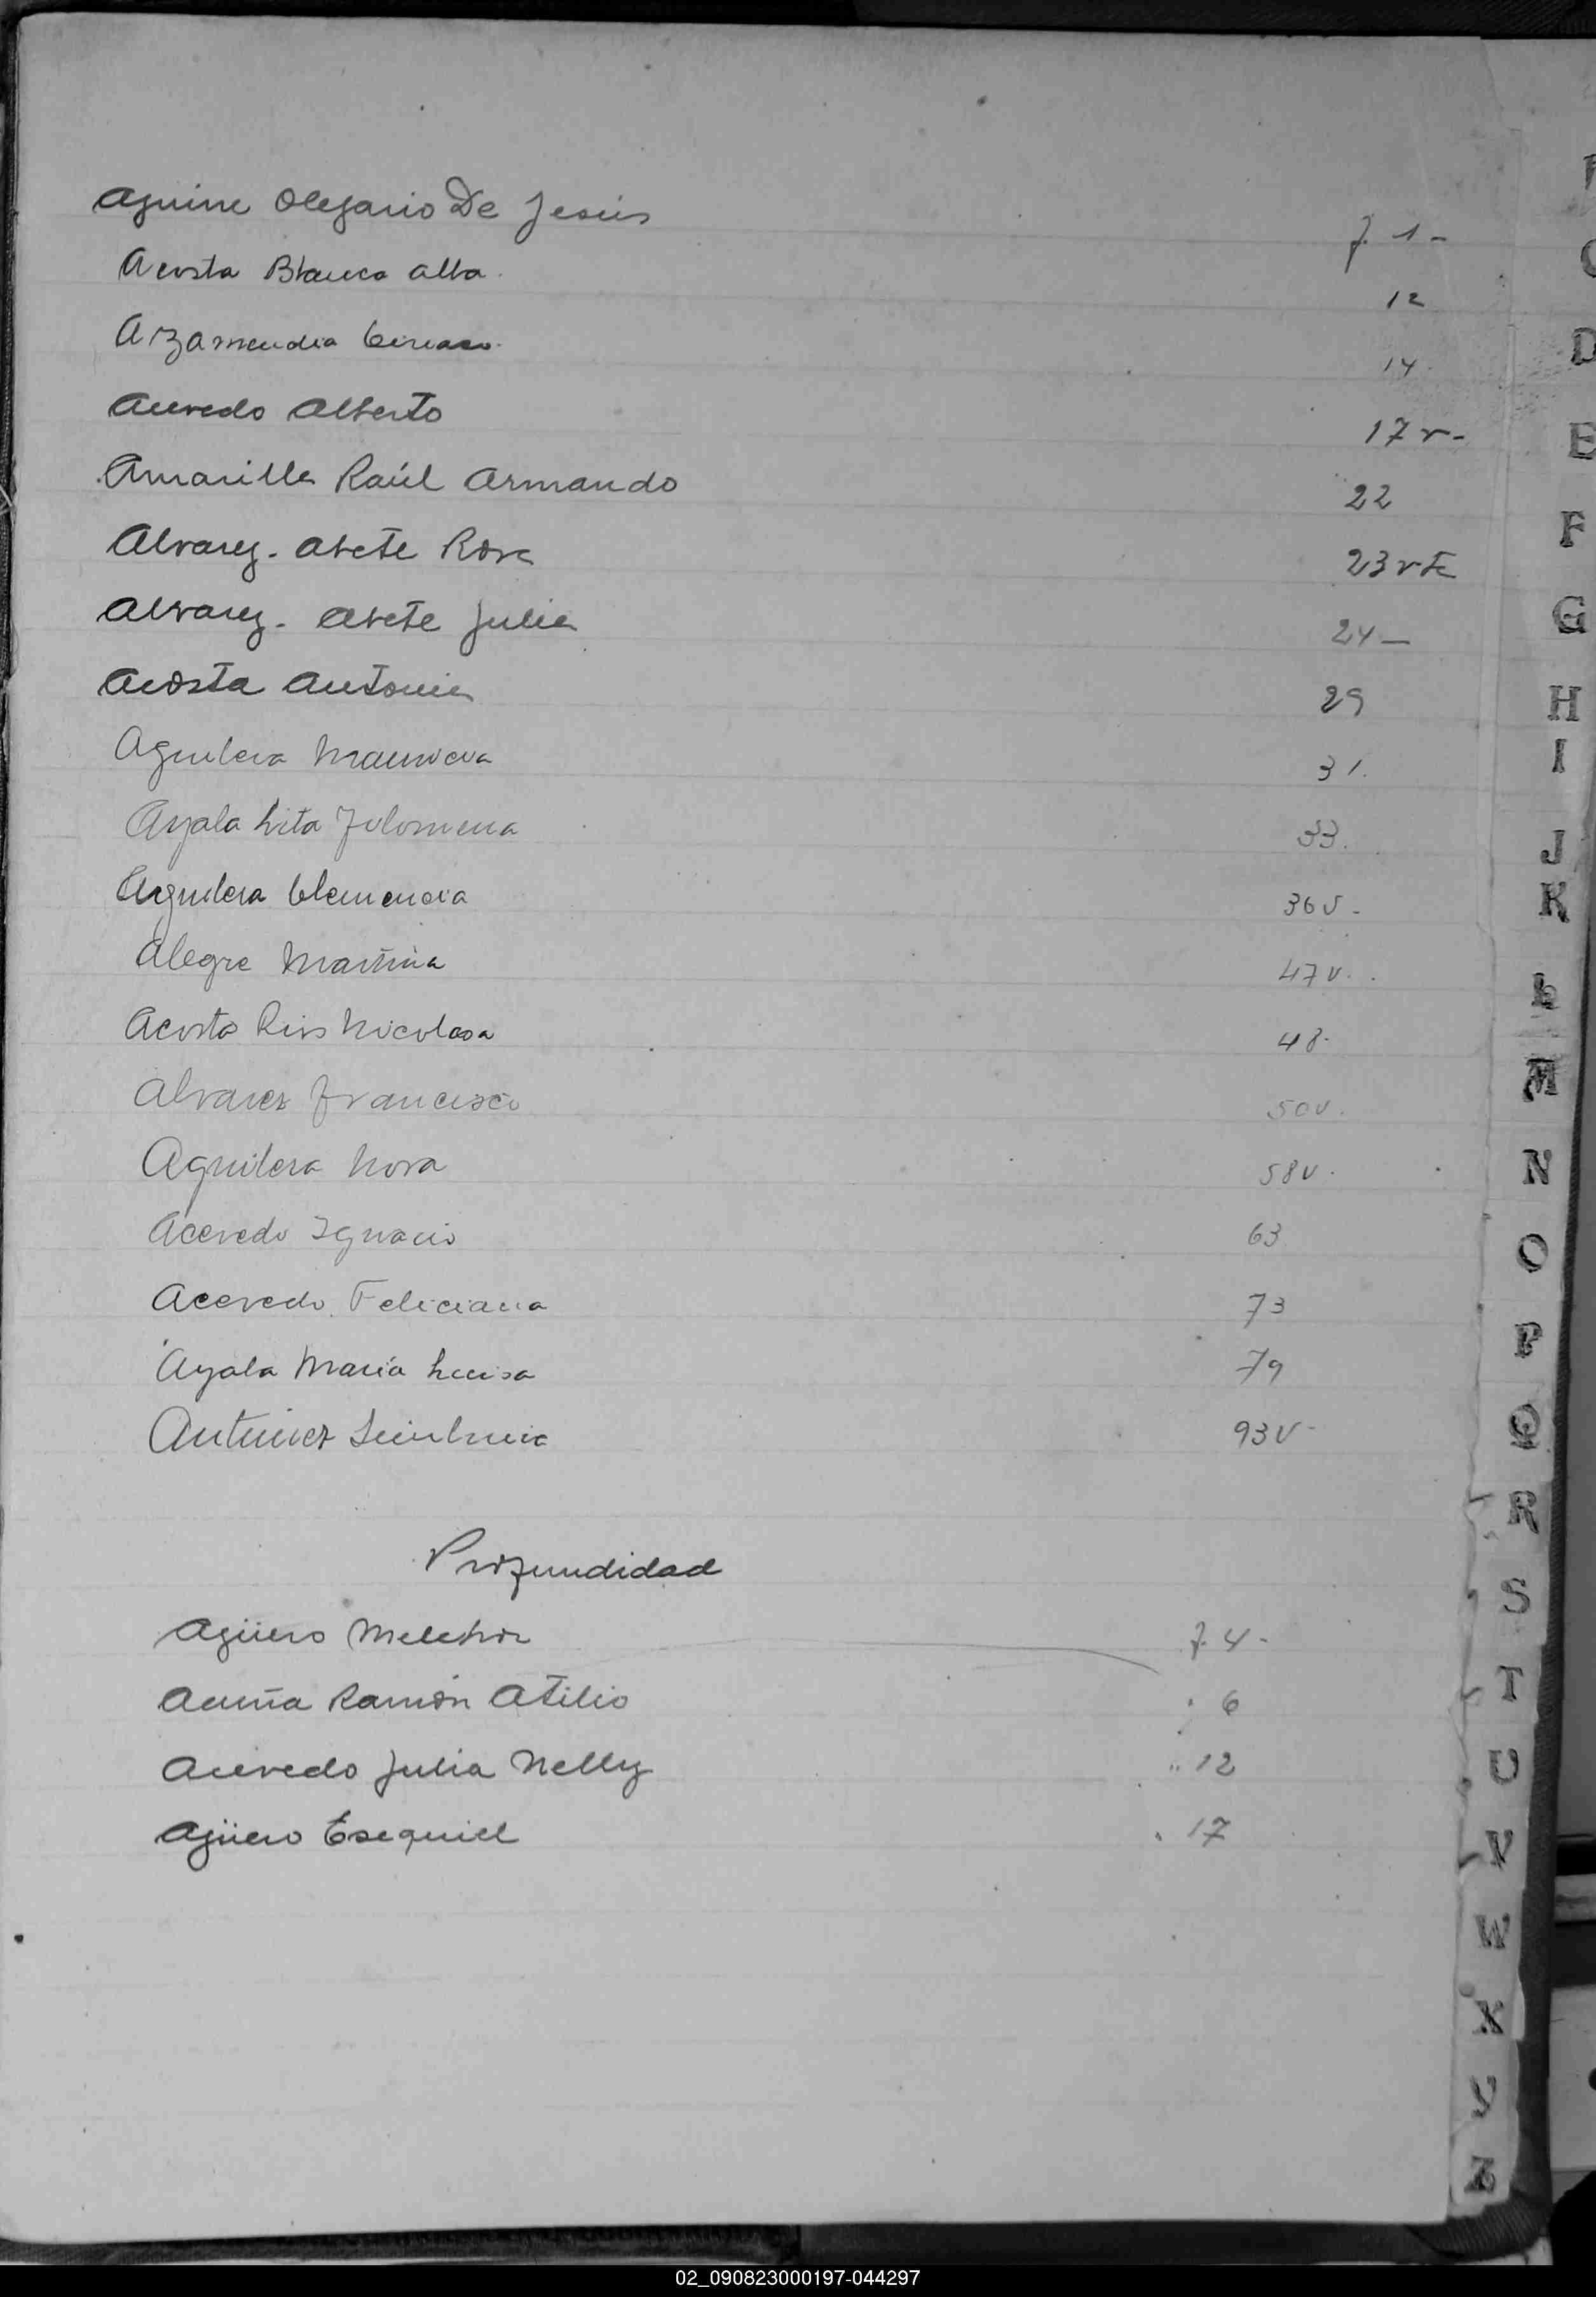 Aguirre Olegario De Jesús f. 1-
Acosta Blanca Alba. 12
Arzamendia Ciriaco. 14
Acevedo Alberto 17 v-
Amarilla Raúl Armando 22
Alvarez. Abete Rosa 23 vta
Alvarez. Abete Julia 24 —
Acosta Antonia 29
Aguilera 31.
Ayala Lita Filomena 33.
Aguilera Clemencia 36 v-
Alegre Martina 47 v.
Acosta Nicolasa 48-
Alvarez Francisco 50 v.
Aguilera Nora 58 v.
Acevedo Ignacio 63
Acevedo Feliciana 73
Ayala María Luisa 79
Antunez 93 v-
Profundidad
Agüero Melchor f. 4-
Acuña Ramón Atilio 6
Acevedo Julia Nelly " 12
Agüero Esequiel 17
D
E
F
G
H
I
J
K
L
M
N
O
P
Q
R
S
T
U
V
W
X
Y
Z
02_090823000197-044297